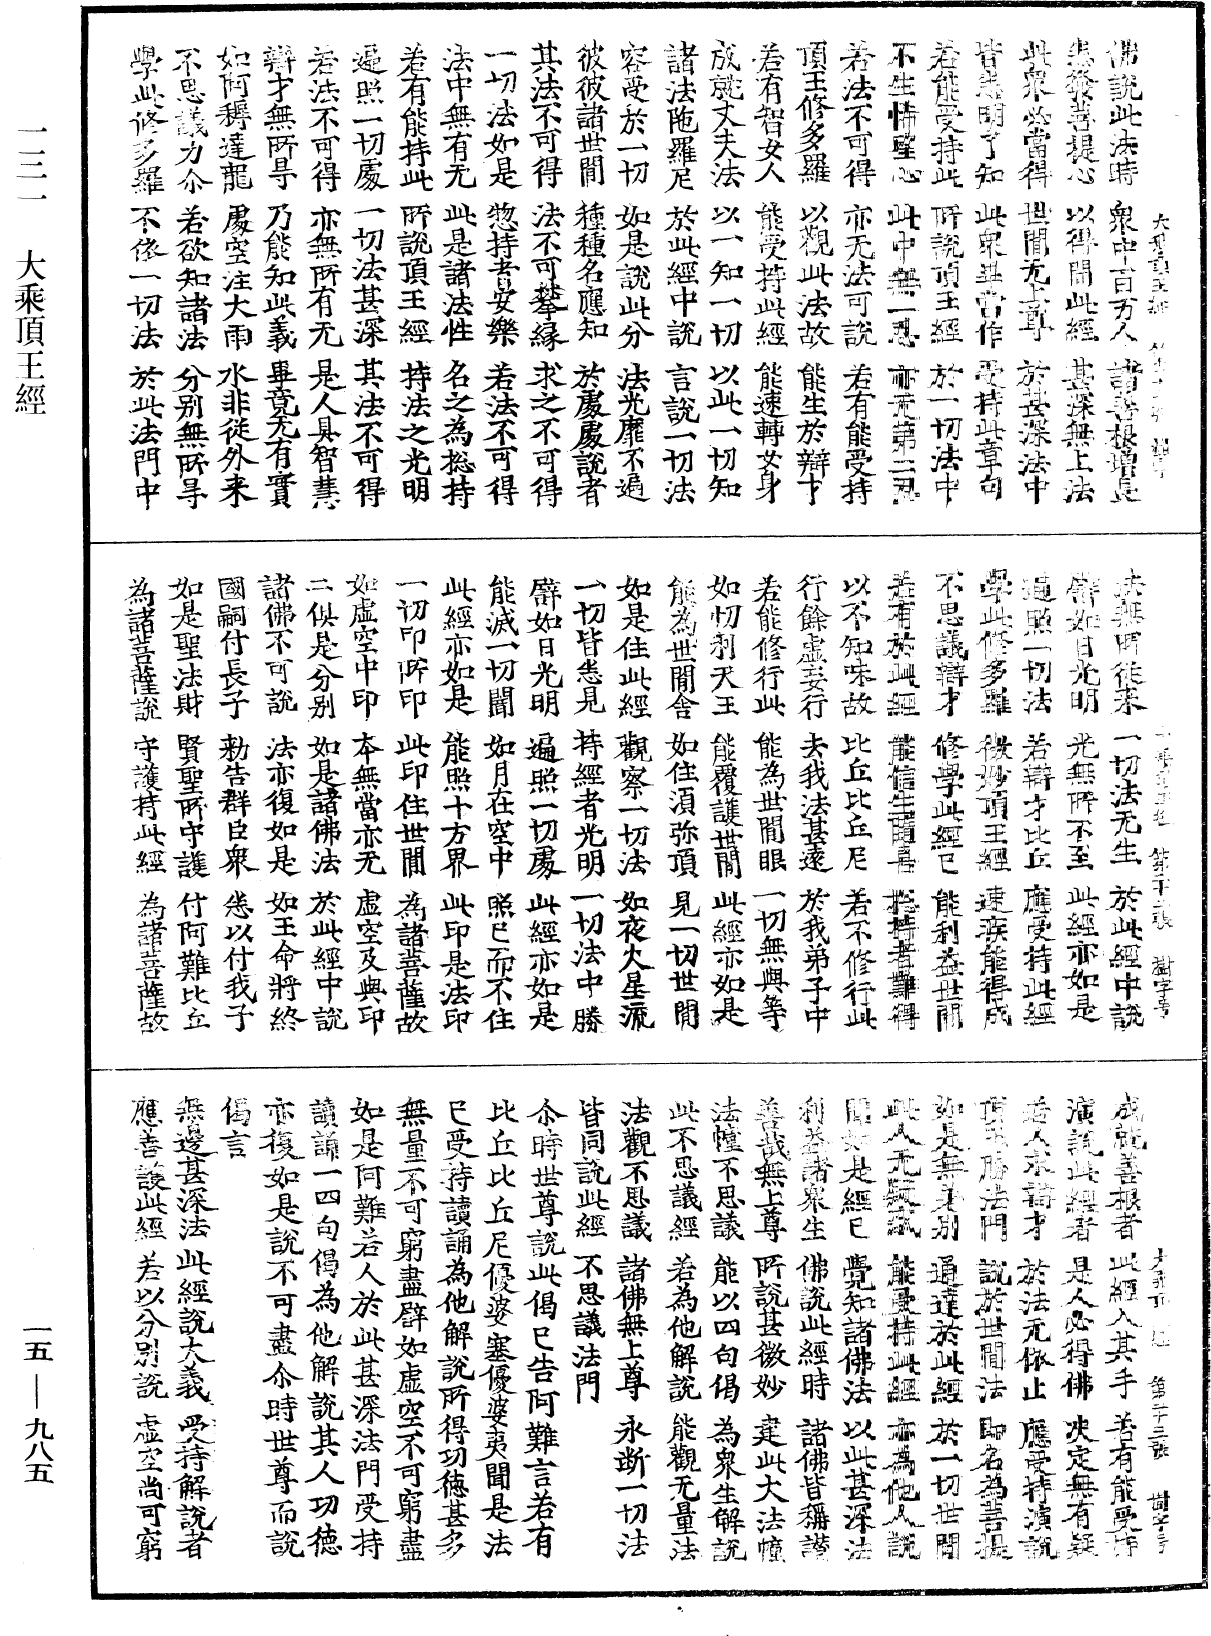 佛說此法時　眾中百万人　諸善根增長
悉發菩提心　以得聞此經　甚深無上法
此眾必當得　世間无上尊　於甚深法中
皆悉明了知　此眾畢當作　受持此章句
若能受持此　所說頂王經　於一切法中
不生悕望心　此中無一忍　亦无第二忍
若法不可得　亦无法可說　若有能受持
頂王修多羅　以觀此法故　能生於辯才
若有智女人　能受持此經　能速轉女身
成就丈夫法　以一知一切　以此一切知
諸法陁羅尼　於此經中說　言說一切法
容受於一切　如是說此分　法光靡不遍
彼彼諸世間　種種名應知　於處處說者
其法不可得　法不可攀緣　求之不可得
一切法如是　惣持者安樂　若法不可得
法中無有无　此是諸法性　名之為捴持
若有能持此　所說頂王經　持法之光明
遍照一切處　一切法甚深　其法不可得
若法不可得　亦無所有无　是人具智慧
辯才無所㝵　乃能知此義　畢竟无有實
如阿耨達龍　處空注大雨　水非從外来
不思議力尒　若欲知諸法　分别無所㝵
學此修多羅　不依一切法　於此法門中
法無所從来　一切法无生　於此經中說
譬如日光明　光無所不至　此經亦如是
遍照一切法　若辯才比丘　應受持此經
學此修多羅　微妙頂王經　速疾能得成
不思議辯才　修學此經已　能利益世間
若有於此經　能信生隨喜　捴持者難得
以不知味故　比丘比丘尼　若不修行此
行餘虛妄行　去我法甚遠　於我弟子中
若能修行此　能為世間眼　一切無與等
如忉利天王　能覆護世間　此經亦如是
能為世間舍　如住湏弥頂　見一切世間
如是住此經　觀察一切法　如夜大星流
一切皆悉見　持經者光明　一切法中勝
譬如日光明　遍照一切處　此經亦如是
能滅一切闇　如月在空中　照已而不住
此經亦如是　能照十方界　此印是法印
一切印所印　此印住世間　為諸菩薩故
如虛空中印　本無當亦无　虛空及與印
二俱是分别　如是諸佛法　於此經中說
諸佛不可說　法亦復如是　如王命將終
國嗣付長子　勅告群臣衆　悉以付我子
如是聖法財　賢聖所守護　付阿難比丘
為諸菩薩說　守護持此經　為諸菩薩故
成就善根者　此經入其手　若有能受持
演說此經者　是人必得佛　决定無有疑
若人求辯才　於法无依止　應受持演說
頂王勝法門　說於世間法　即名為菩提
如是無差别　通達於此經　於一切世間
此人无疑惑　能受持此經　亦為他人說
聞如是經已　覺知諸佛法　以此甚深法
利益諸眾生　佛說此經時　諸佛皆稱讚
善哉無上尊　所說甚微妙　建此大法幢
法幢不思議　能以四句偈　為眾生解說
此不思議經　若為他解說　能觀无量法
法觀不思議　諸佛無上尊　永断一切法
皆同說此經　不思議法門
尒時世尊說此偈已告阿難言若有
比丘比丘尼優婆塞優婆夷聞是法
已受持讀誦為他解說所得功德甚多
無量不可窮盡譬如虛空不可窮盡
如是阿難若人於此甚深法門受持
讀誦一四句偈為他解說其人功德
亦復如是說不可盡尒時世尊而說
偈言
無邊甚深法　此經說大義　受持解說者
應善護此經　若以分别說　虛空尚可窮
二三一　大乘頂王經
一五—九八五